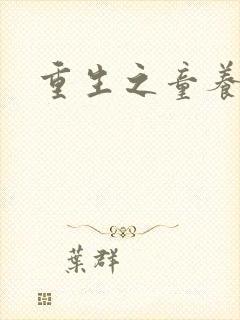 重生之童養
葉群